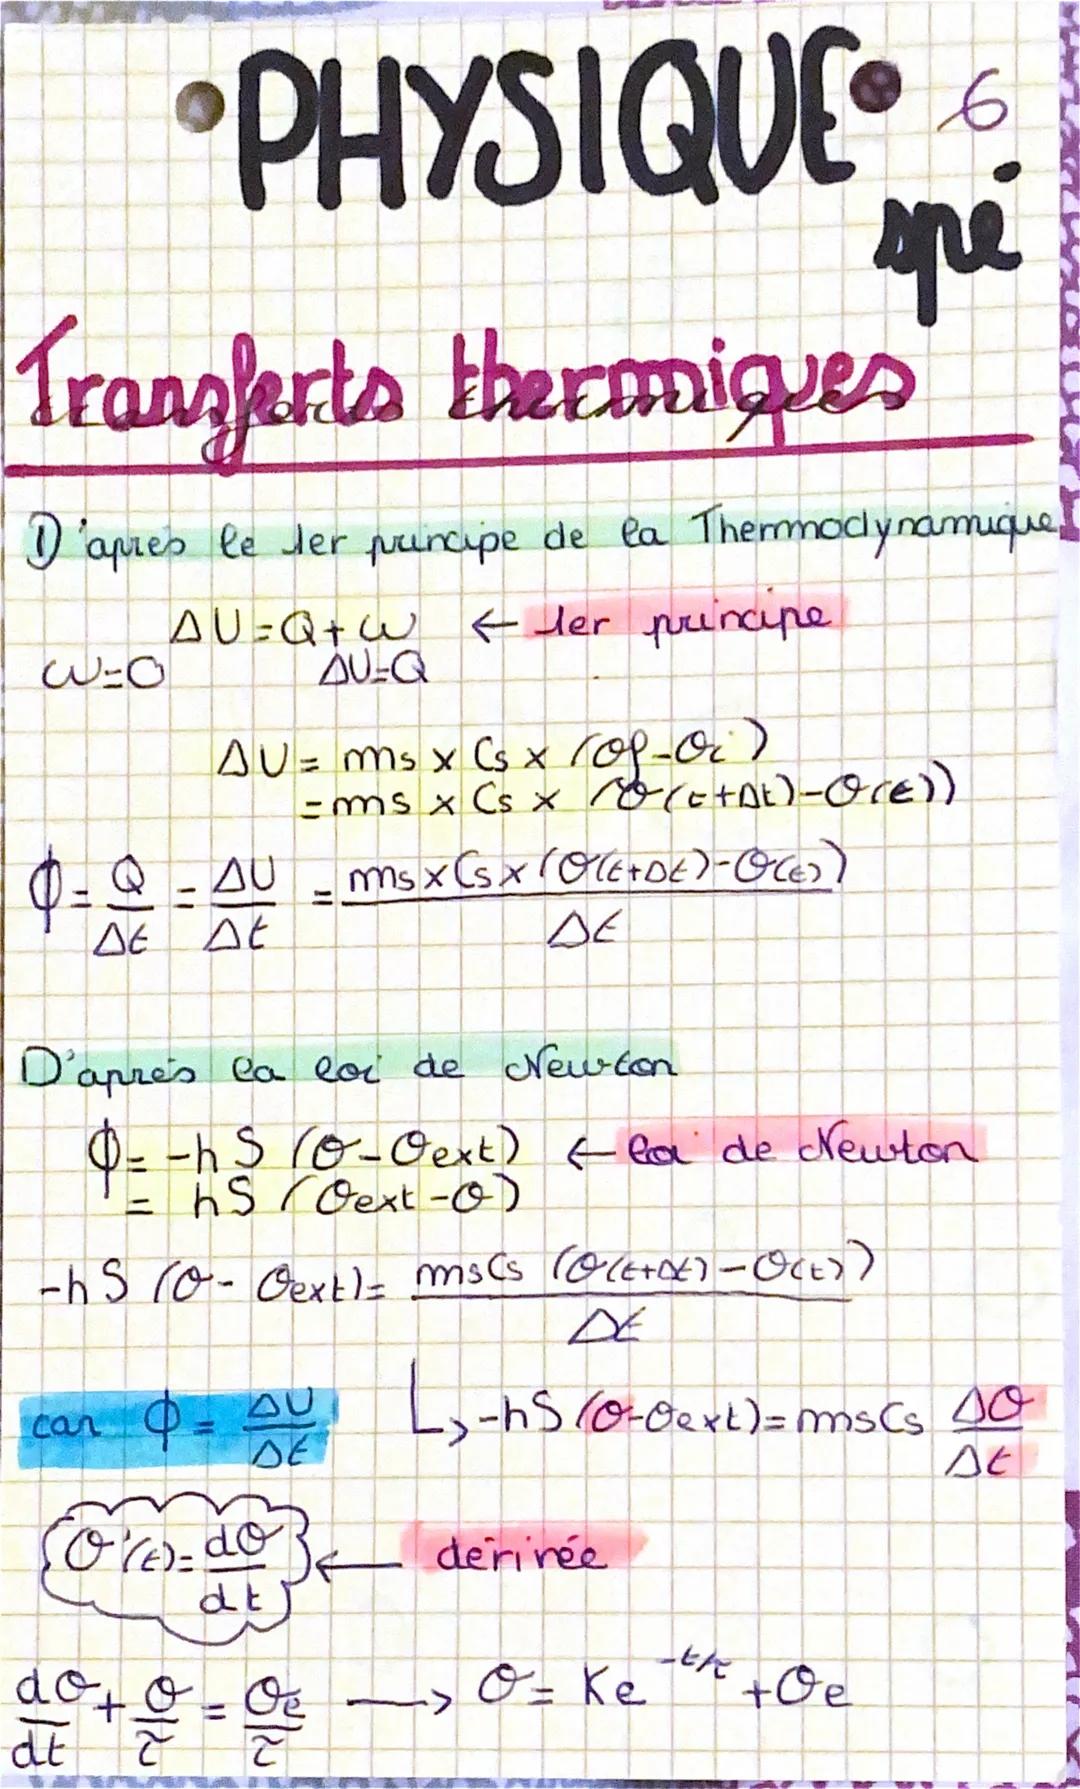 •PHYSIQUE• 6
spé
Transferts thermiques
D'après le 1er principe de la Thermmodynamique
ΔU=Q+W ← 1er principe
W=0 ΔU=Q
ΔU= ms x Cs x (θf-θi)
=ms x Cs x (θ(t+Δt)-θ(t))
Φ= Q/Δt = ΔU/Δt = ms x Cs x (θ(t+Δt)-θ(t))/Δt
D'après la loi de Newton
Φ= -hS (θ-θext) ← loi de Newton
= hS (θext-θ)
-hS (θ- θext)= msCs (θ(t+Δt)-θ(t))/Δt
car Φ= ΔU/Δt ↳ -hS (θ-θext)= msCs Δθ/Δt
θ'(t)= dθ/dt ← dérivée
dθ/dt + θ/τ = θe/τ → θ= Ke^-t/τ +θe